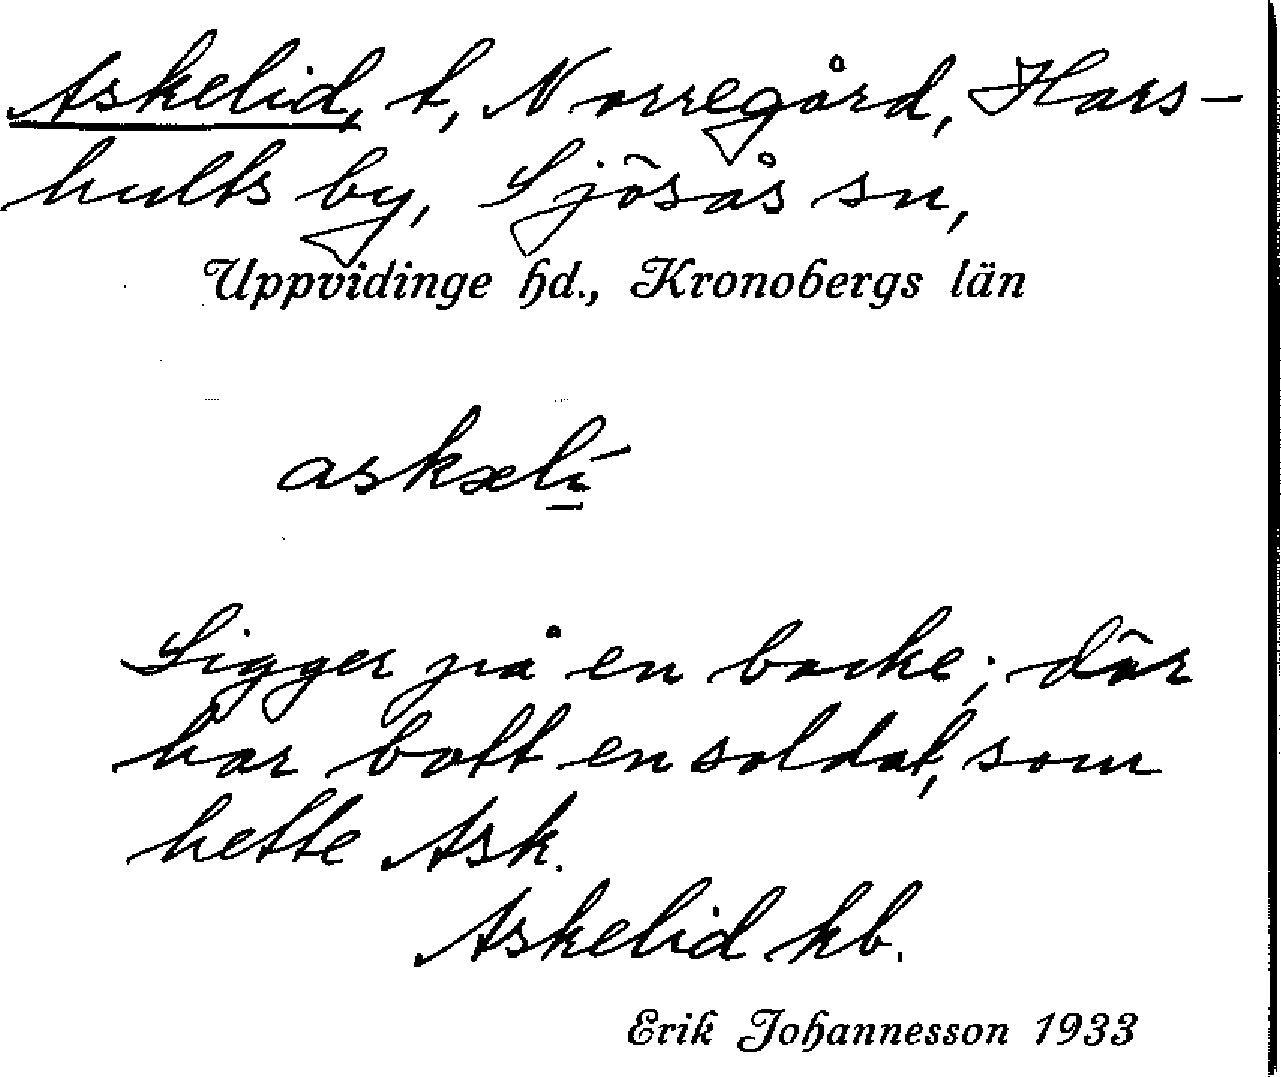 Askelid, t, Norregård, Hars-
hults by, Sjösås sn,
Uppvidinge hd., Kronobergs län
askæli
Ligger på en backe; där
har bott en soldat, som
hette Ask.
Askelid kb.
Erik Johannesson 1933